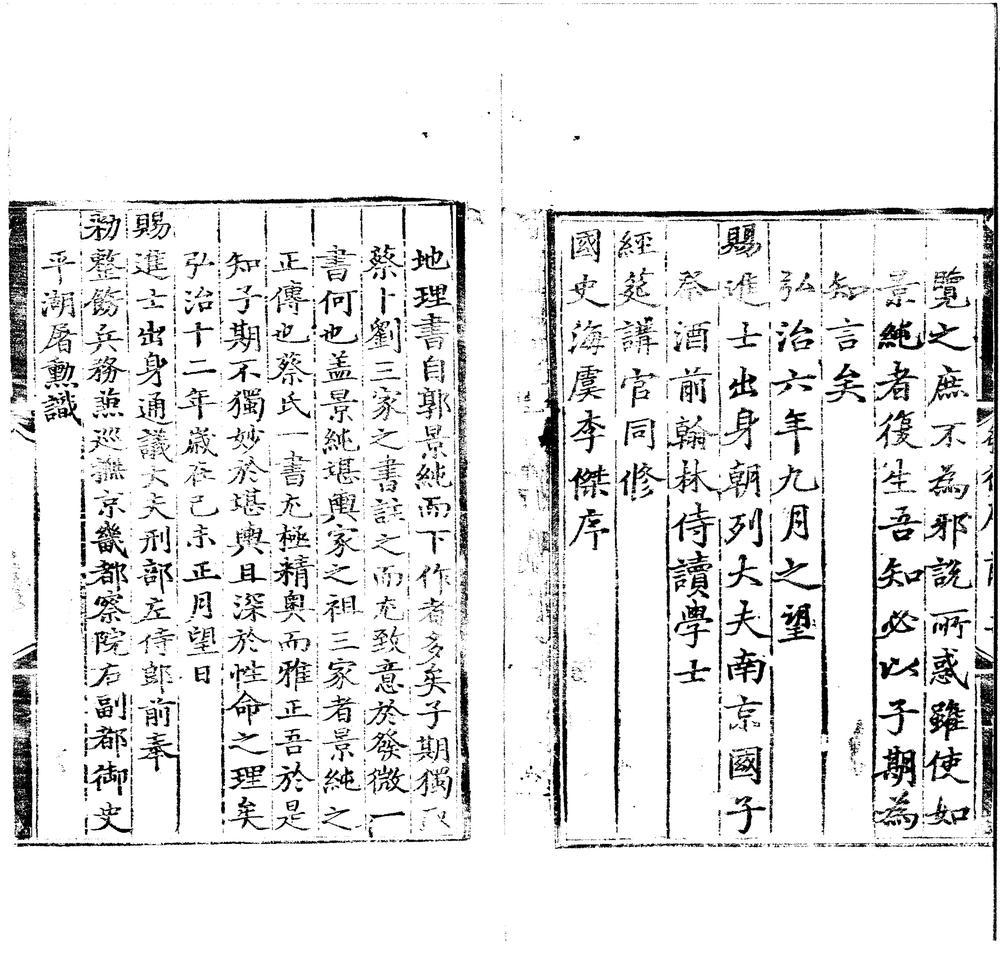 覽之庶不為邪說所惑雖使如
景純者復生吾知必以子期為
知言矣
弘治六年九月之望
賜進士出身朝列大夫南京國子
祭酒前翰林侍讀學士
經筵講官同修
國史海虞李傑序
地理書自郭景純而下作者多矣子期獨取
蔡卜劉三家之書註之而尤致意於發微一
書何也盖景純堪輿家之祖三家者景純之
正傳也蔡氏一書尤極精奧而雅正吾於是
知子期不獨妙於堪輿且深於性命之理矣
弘治十二年歲在己未正月望日
賜進士出身通議大夫刑部左侍郎前奉
勑整飭兵務兼巡撫京畿都察院右副都御史
平湖屠勲識